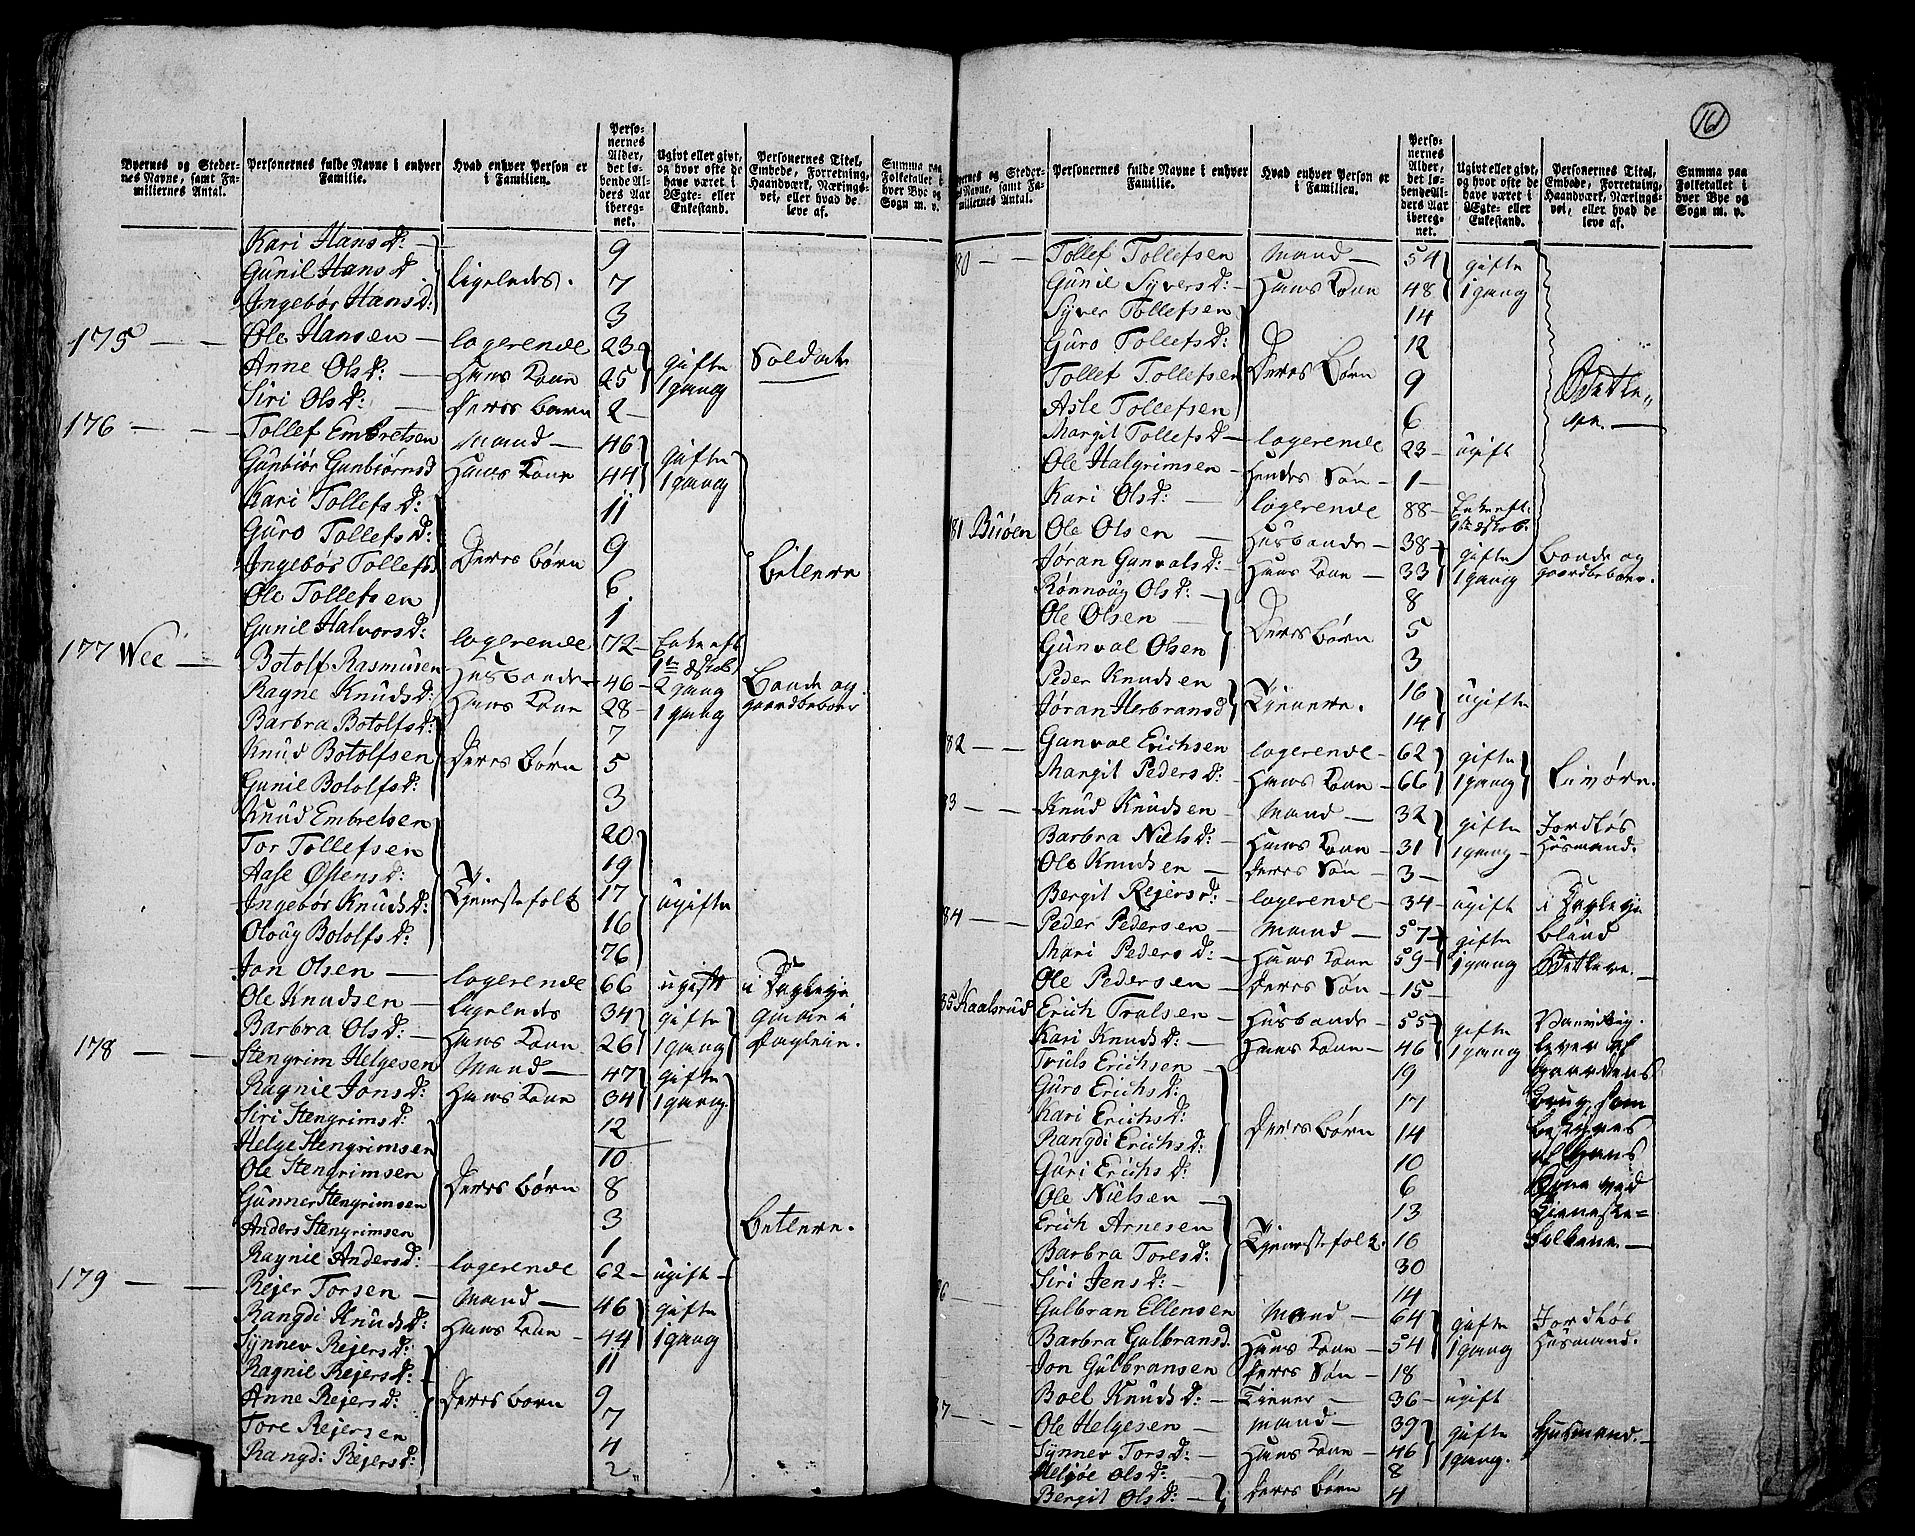 161
Byernes og Stedernes Navne, samt Familiernes Antal. | Personernes fulde Navne i enhver Familie. | Hvad enhver Person er i Familien. | Personernes Alder, det løbende Alders Aar iberegnet. | Ugivt eller givt, og hvor ofte de have været i Ægte- eller Enkestand. | Personernes Titel, Embede, Forretning, Haandværk, Næringsvei, eller hvad de leve af. | Summa paa Folketallet i hver Bye og Sogn m. v.
Kari Hans D: — 9
Gunil Hans D ligeledes. 7
Ingebør Hans D: 3
175 — — Ole Hansen — logerende 23 gifte Soldat
Anne Ols D: — Hans Kone 25 1 gang
Siri Ols D: — Deres barn 2 —
176 — — Tollef Embretsen Mand — 46 gifte
Gunbiør Gunbiørns D Hans Kone 44 1 gang
Kari Tollefs D: 11
Guro Tollefs D: 9
Ingebør Tollefs D Deres børn 6 Betlere
Ole Tollefsen 1
Gunil Halvors D: logerende 72 — Enke eft 1te Ægtesk
177 Wee — Botolf Rasmusen Husbonde — 46 — 2 gang Bonde og
Ragne Knuds D: Hans Kone 28 — 1 gang gaardbeboer
Barbra Botolfs D: 7
Knud Botolfsen Deres børn 5
Gunil Botolfs D: 3
Knud Embretsen 20
Tor Tollefsen 19
Aase Østens D: Tjenestefolk 17 ugifte
Ingebør Knuds D: 16
Oloug Botolfs D: 76
Jon Olsen — logerende 66 ugift i Dagleje
Ole Knudsen — ligeledes 34 gifte
Barbra Ols D: — Hans Kone 26 1 gang Dagleie.
178 — — Stengrim Helgesen Mand — 47 gifte
Ragnie Jons D: Hans Kone 34 1 gang.
Siri Stengrims D: 12
Helge Stengrimsen 10
Ole Stengrimsen Deres børn 8
Gunner Stengrimsen 3 betlere.
Anders Stengrimsen 1
Ragnie Anders D: logerende 62 — ugift —
179 — — Rejer Torsen — Mand — 46 gifte
Rangdi Knuds D: Hans Kone — 44 1 gang
Synnev Rejers D: 11
Ragnil Rejers D: 9
Anne Rejers D: Deres børn 7
Tore Rejersen 4
Rangdi Rejers D: 2
Byernes og Stedernes Navne, samt Familiernes Antal. | Personernes fulde Navne i enhver Familie. | Hvad enhver Person er i Familien. | Personernes Alder, det løbende Alders Aar iberegnet. | Ugivt eller givt, og hvor ofte de have været i Ægte- eller Enkestand. | Personernes Titel, Embede, Forretning, Haandværk, Næringsvei, eller hvad de leve af. | Summa paa Folketallet i hver Bye og Sogn m. v.
80 — — Tollef Tollefsen Mand — 54 gifte
Gunil Syvers D: — Hans Kone 48 1 gang
Syver Tollefsen 14
Guro Tollefs D: 12
Tollef Tollefsen Deres Børn 9 Betle-
Asle Tollefsen 6 re. —
Margit Tollefs D — logerende 23 — ugift
Ole Halgrimsen — Hendes Søn — 1 —
Kari Ols D: — logerende 88 — Enke eft: 1te
81 Buøen Ole Olsen — Husbonde — 38 gifte Bonde og
Jøran Gunvals D: — Hans Kone — 33 1 gang gaardbeboer.
Rønnoug Ols D: — 8
Ole Olsen — Deres børn 5
Gunval Olsen 3
Peder Knudsen Tjenere. 16 ugifte
Jøran Herbrans D 14
82 — — Gunval Erichsen logerende — 62 gifte
Margit Peders D: — Hans Kone — 66 1 gang
83 — — Knud Knudsen — Mand — 32 gifte Jordløs
Barbra Niels D: — Hans Kone — 31 1 gang — Husmand.
Ole Knudsen — Deres Søn — 3 —
Bergit Rejers D: — logerende — 34 — ugift i Dagleje
84 — — Peder Pedersen — Mand — 57 gifte blind
Mari Peders D: — Hans Kone 59 1 gang Betlere. —
Ole Pedersen — Deres Søn — 15 —
85 Kaalsrud Erich Trulsen — Husbonde — 55 gifte
Kari Knuds D: — Hans Kone — 46 1 gang lever af
Truls Erichsen 19 Gaardens
Guro Erichs D: 17 Brug, som
Kari Erichs D: Deres børn 14
Rangdi Erichs D: 10 af Hans
Guri Erichs D: 6 Kone ved
Ole Nielsen — 13 Tieneste-
Erich Arnesen Tjenestefolk. 16 folkene. —
Barbra Tores D: 30
Siri Jens D: — 14
86 — — Gulbran Ellensen Mand — 64 gifte Jordløs
Barbra Gulbrans D. Hans Kone — 54 1 gang Husmand.
Jon Gulbransen Deres Søn — 18
Boel Knuds D: — Tiener — 36 — ugift
87 — — Ole Helgesen — Mand — 39 gifte Husmand. —
Synnev Tors D: — Hans Kone — 46 1 gang.
Helgøe Ols D: — Deres børn 8
Bergit Ols D: — 4